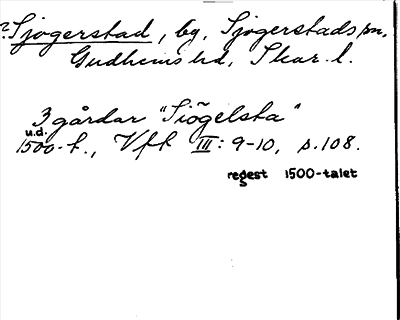 ? Sjogerstad, by, Sjogerstads sn,
Gudhems hd, Skar. l.
3 gårdar "Siögelsta"
u.d.
1500-t., Vft III: 9-10, s. 108.
regest 1500-talet